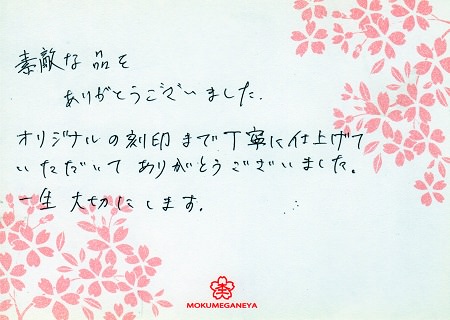 素敵な品を
ありがとうございました.
オリジナルの刻印まで丁寧に仕上げて
いただいてありがとうございました。
一生大切にします.
MOKUMEGANEYA